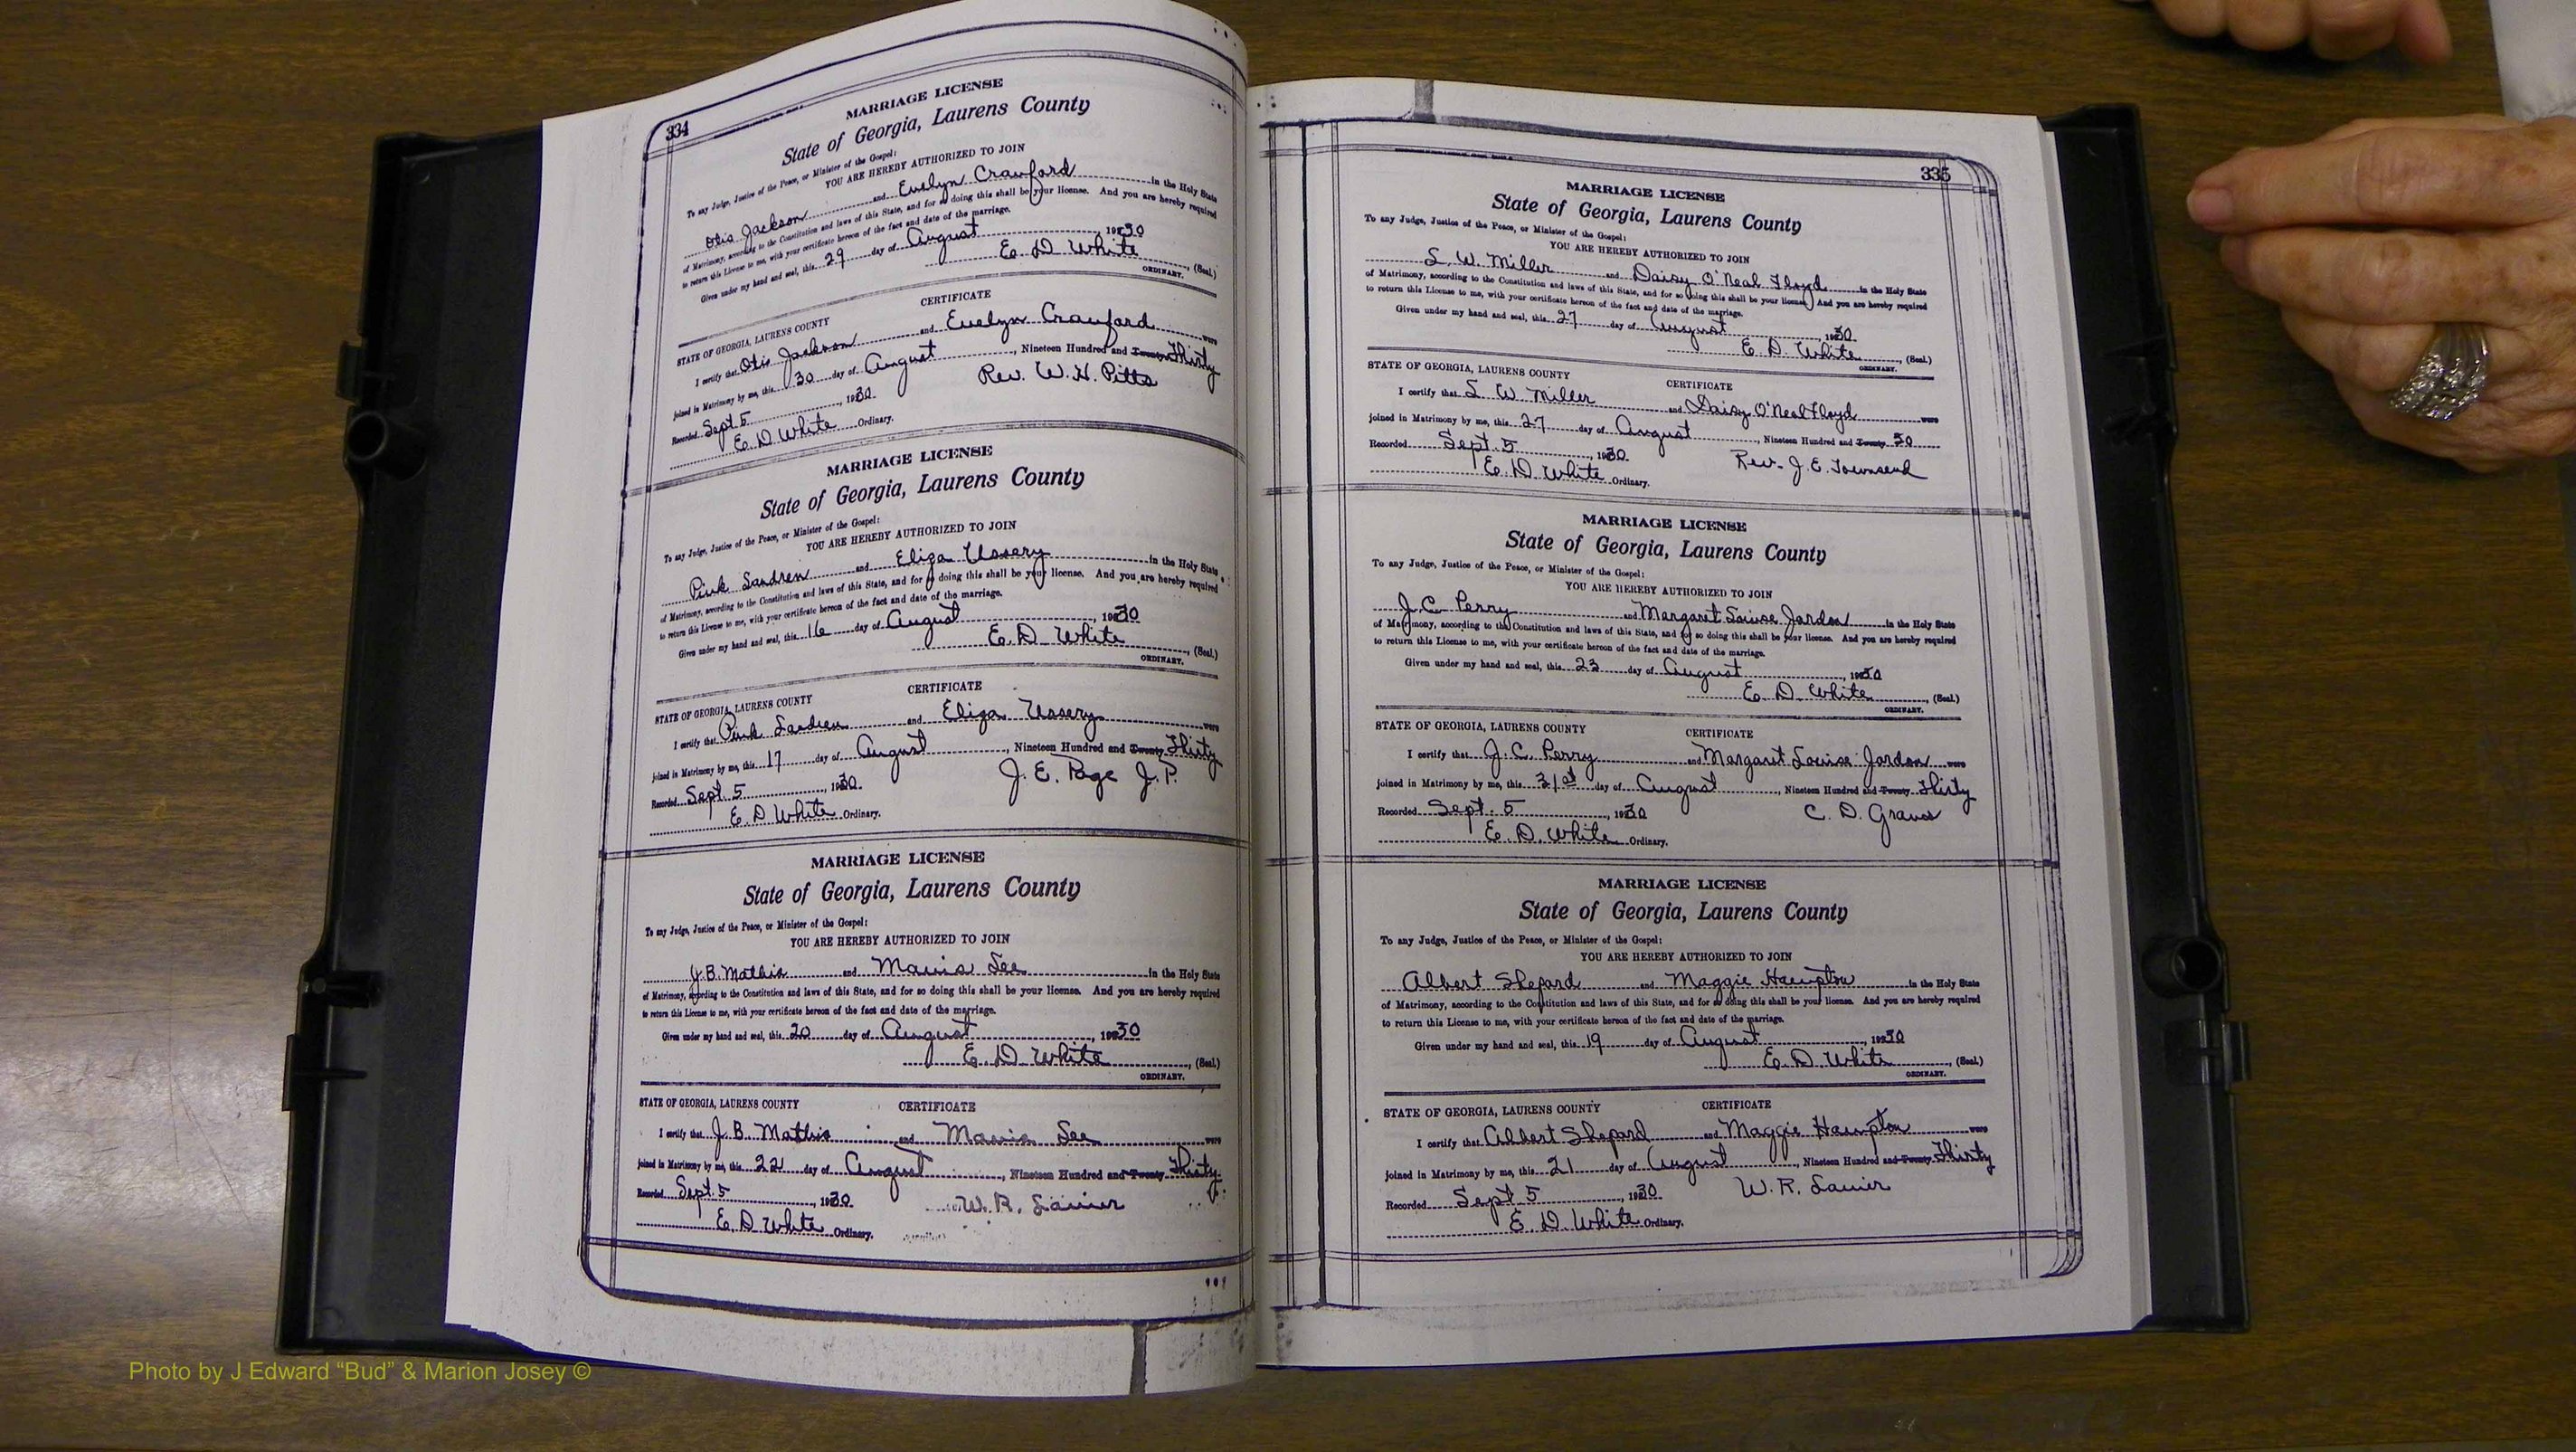 334
MARRIAGE LICENSE
State of Georgia, Laurens County
To any Judge, Justice of the Peace, or Minister of the Gospel:
YOU ARE HEREBY AUTHORIZED TO JOIN
Otis Jackson and Evelyn Crawford in the Holy State
of Matrimony, according to the Constitution and laws of this State, and for so doing this shall be your license. And you are hereby required
to return this License to me, with your certificate hereon of the fact and date of the marriage.
Given under my hand and seal, this 29 day of August, 1930
E. D. White, (Seal.)
ORDINARY.
CERTIFICATE
STATE OF GEORGIA, LAURENS COUNTY
I certify that Otis Jackson and Evelyn Crawford were
joined in Matrimony by me, this 30 day of August, Nineteen Hundred and Twenty Thirty
Recorded Sept 5, 1930. Rev. W. H. Pitts
E. D. White Ordinary.
MARRIAGE LICENSE
State of Georgia, Laurens County
To any Judge, Justice of the Peace, or Minister of the Gospel:
YOU ARE HEREBY AUTHORIZED TO JOIN
Pink Sandren and Eliza Ussery in the Holy State
of Matrimony, according to the Constitution and laws of this State, and for so doing this shall be your license. And you are hereby required
to return this License to me, with your certificate hereon of the fact and date of the marriage.
Given under my hand and seal, this 16 day of August, 1930
E. D. White, (Seal.)
ORDINARY.
CERTIFICATE
STATE OF GEORGIA, LAURENS COUNTY
I certify that Pink Sandren and Eliza Ussery were
joined in Matrimony by me, this 17 day of August, Nineteen Hundred and Twenty Thirty
Recorded Sept. 5, 1930. J. E. Page J. P.
E. D. White Ordinary.
MARRIAGE LICENSE
State of Georgia, Laurens County
To any Judge, Justice of the Peace, or Minister of the Gospel:
YOU ARE HEREBY AUTHORIZED TO JOIN
J. B. Mathis and Lee in the Holy State
of Matrimony, according to the Constitution and laws of this State, and for so doing this shall be your license. And you are hereby required
to return this License to me, with your certificate hereon of the fact and date of the marriage.
Given under my hand and seal, this 20 day of August, 1930
E. D. White, (Seal.)
ORDINARY.
STATE OF GEORGIA, LAURENS COUNTY CERTIFICATE
I certify that J. B. Mathis and Lee were
joined in Matrimony by me, this 22 day of August, Nineteen Hundred and Twenty Thirty
Recorded Sept. 5, 1930. W. R. Lanier
E. D. White Ordinary.
335
MARRIAGE LICENSE
State of Georgia, Laurens County
To any Judge, Justice of the Peace, or Minister of the Gospel:
YOU ARE HEREBY AUTHORIZED TO JOIN
S. W. Miller and Daisy O'Neal Floyd in the Holy State
of Matrimony, according to the Constitution and laws of this State, and for so doing this shall be your license. And you are hereby required
to return this License to me, with your certificate hereon of the fact and date of the marriage.
Given under my hand and seal, this 27 day of August, 1930.
E. D. White, (Seal.)
ORDINARY.
STATE OF GEORGIA, LAURENS COUNTY CERTIFICATE
I certify that S. W. Miller and Daisy O'Neal Floyd were
joined in Matrimony by me, this 27 day of August, Nineteen Hundred and Twenty 30
Recorded Sept. 5, 1930. Rev. J. E. Townsend
E. D. White Ordinary.
MARRIAGE LICENSE
State of Georgia, Laurens County
To any Judge, Justice of the Peace, or Minister of the Gospel:
YOU ARE HEREBY AUTHORIZED TO JOIN
J. C. Perry and Margaret Louise Jordon in the Holy State
of Matrimony, according to the Constitution and laws of this State, and for so doing this shall be your license. And you are hereby required
to return this License to me, with your certificate hereon of the fact and date of the marriage.
Given under my hand and seal, this 23 day of August, 1930
E. D. White, (Seal.)
ORDINARY.
STATE OF GEORGIA, LAURENS COUNTY CERTIFICATE
I certify that J. C. Perry and Margaret Louise Jordon were
joined in Matrimony by me, this 31st day of August, Nineteen Hundred and Twenty Thirty
Recorded Sept. 5, 1930 C. D. Graves
E. D. White Ordinary.
MARRIAGE LICENSE
State of Georgia, Laurens County
To any Judge, Justice of the Peace, or Minister of the Gospel:
YOU ARE HEREBY AUTHORIZED TO JOIN
Albert Shepard and Maggie Hampton in the Holy State
of Matrimony, according to the Constitution and laws of this State, and for so doing this shall be your license. And you are hereby required
to return this License to me, with your certificate hereon of the fact and date of the marriage.
Given under my hand and seal, this 19 day of August, 1930
E. D. White, (Seal.)
ORDINARY.
STATE OF GEORGIA, LAURENS COUNTY CERTIFICATE
I certify that Albert Shepard and Maggie Hampton were
joined in Matrimony by me, this 21 day of August, Nineteen Hundred and Twenty Thirty
Recorded Sept 5, 1930 W. R. Lanier
E. D. White Ordinary.
Photo by J Edward “Bud” & Marion Josey ©